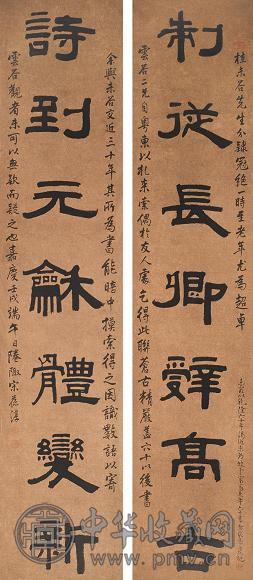 桂未谷先生分隸冠絕一時至老年尤為超卓
制從長卿辭高古
雲谷二兄自粵東以札來索偶於友人處乞得此聯蒼古精嚴蓋六十以後書
余與未谷交近三十年其所為書能暗中摸索得之因識數語以寄
詩到元龢體變新
雲谷觀者未可以無款而疑之也嘉慶壬戌端午日陬宋葆淳
中华收藏网